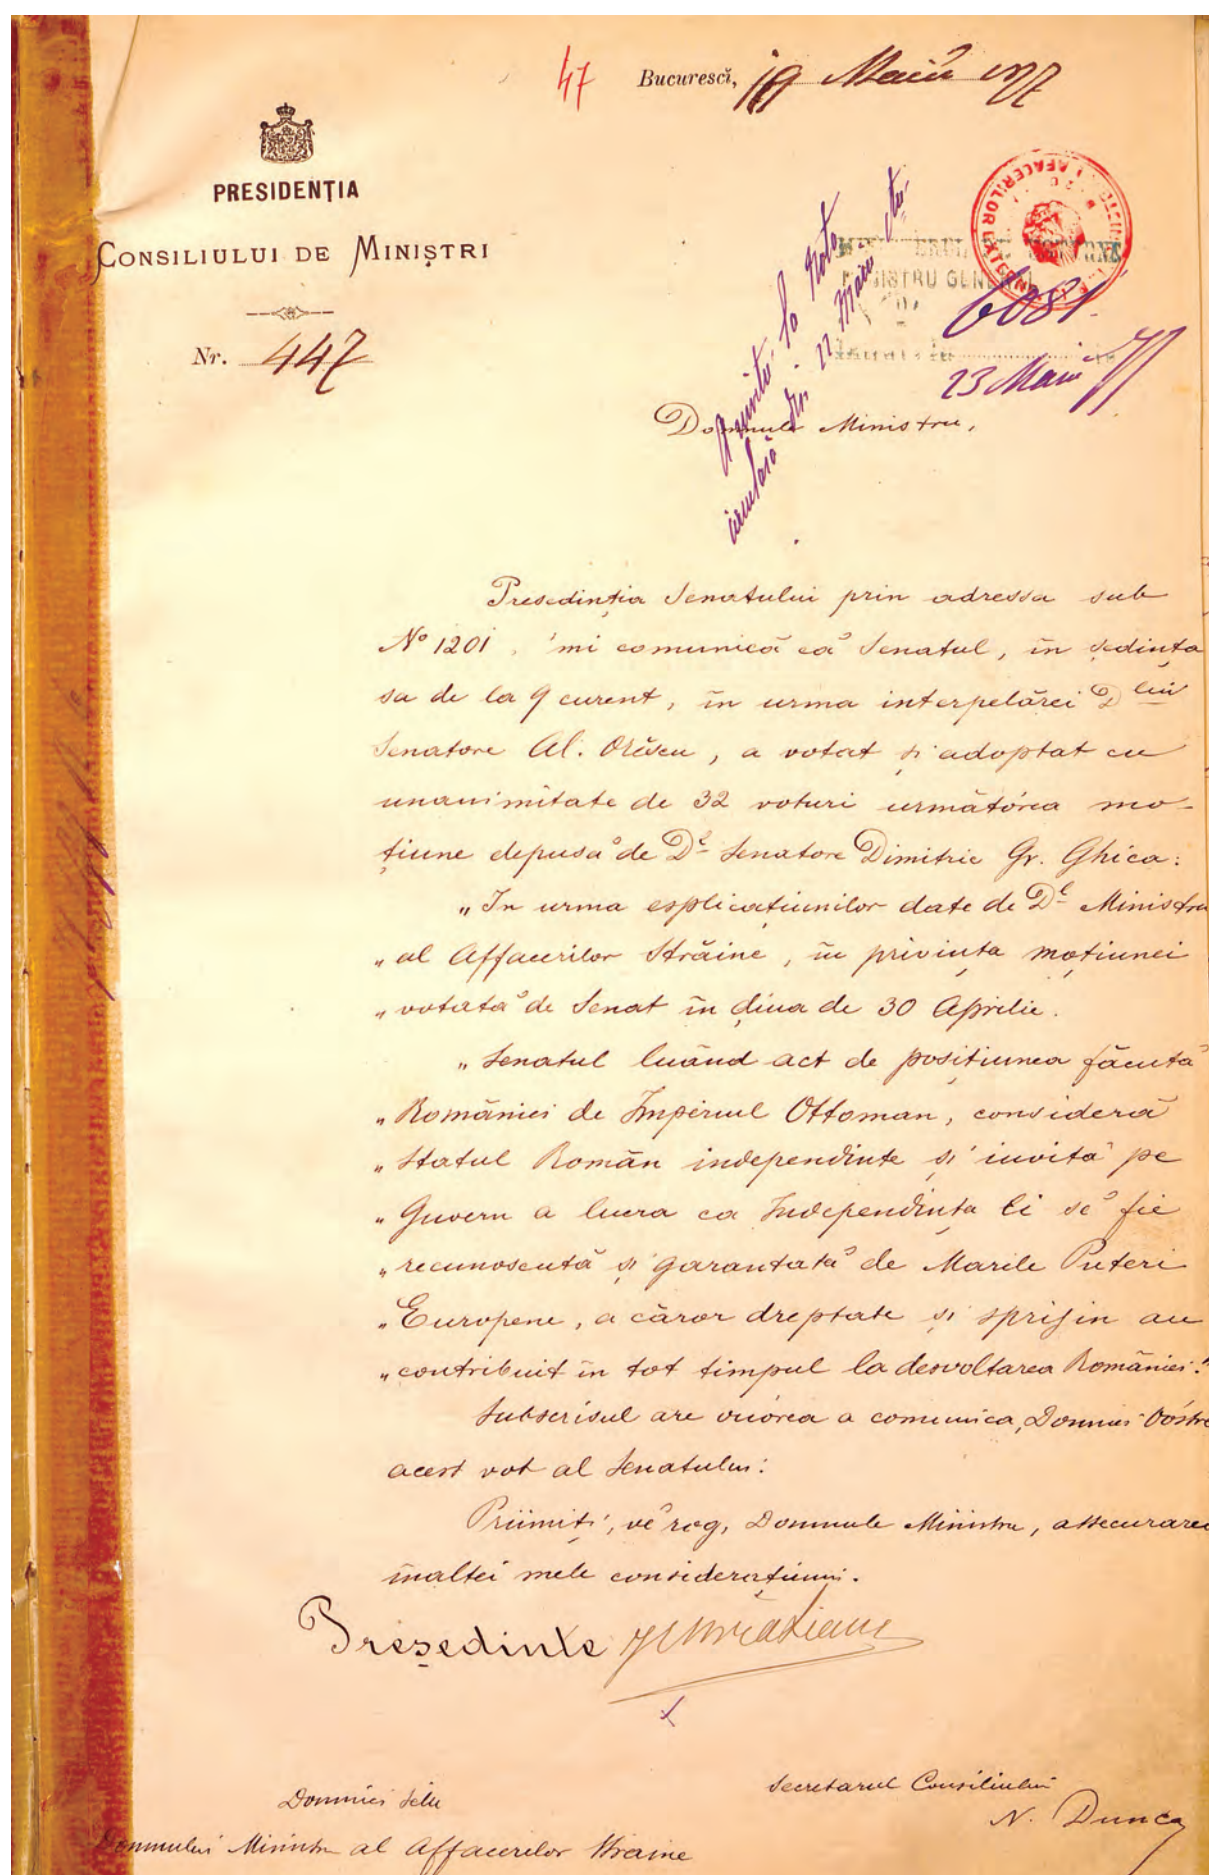 47
Bucurescĭ, 19 Maiŭ 1877
PRESIDENȚIA
CONSILIULUI DE MINIȘTRI
Nr. 447
REGISTRU GENERAL
6081
23 Maiŭ 77
la Nota
circulară No. 22 Maiŭ
Domnule Ministru,
Președinția Senatului prin adressa sub
No 1201, 'mi comunică că Senatul, în ședința
sa de la 9 curent, în urma interpelărei D lui
Senatore Al. Orăscu, a votat și adoptat cu
unanimitate de 32 voturi următórea mo-
țiune depusă de Dl Senatore Dimitrie Gr. Ghica:
„In urma esplicațiunilor date de Dl Ministru
„al Affacerilor Străine, în privința moțiunei
„votată de Senat în ḑiua de 30 Aprilie.
„Senatul luând act de posițiunea făcută
„României de Imperiul Ottoman, consideră
„Statul Român independinte și invită pe
„Guvern a lucra ca Independința Ei să fie
„recunoscută și garantată de Marile Puteri
„Europene, a căror dreptate și sprijin au
„contribuit în tot timpul la desvoltarea României."
Subscrisul are onórea a comunica, Domniei Vóstre
acest vot al Senatului.
Priimiți, vĕ rog, Domnule Ministru, assecurarea
înaltei mele considerațiuni.
Președinte I. C. Brătianu
Secretarul Consiliului
N. Dunca
Domniei Sele
Domnului Ministru al Affacerilor Străine